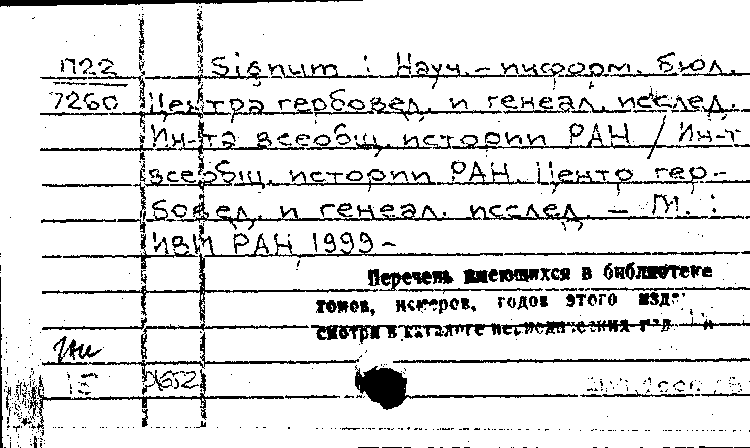 П22 Signum : Науч.-информ. бюл.
7260 Центра гербовед. и генеал. исслед.
Ин-та всеобщ. истории РАН / Ин-т
всеобщ. истории РАН. Центр гер-
бовед. и генеал. исслед. – М. :
ИВИ РАН, 1999–
Перечень имеющихся в библиотеке
томов, номеров, годов этого
смотри в каталоге
15